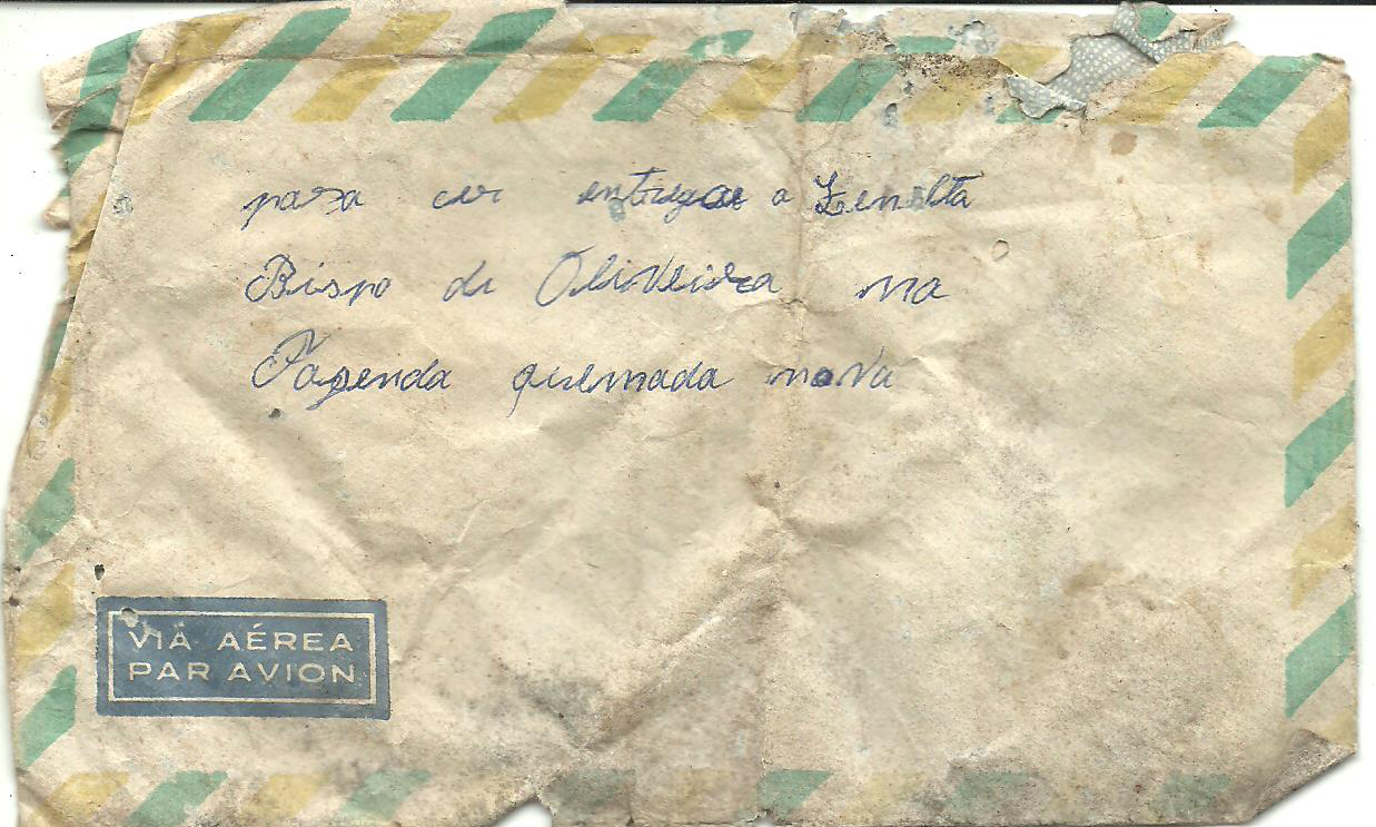 para cer entregue a Zenilta
Bispo de Oliveira na
Fazenda quemada nova
VIA AÉREA
PAR AVION